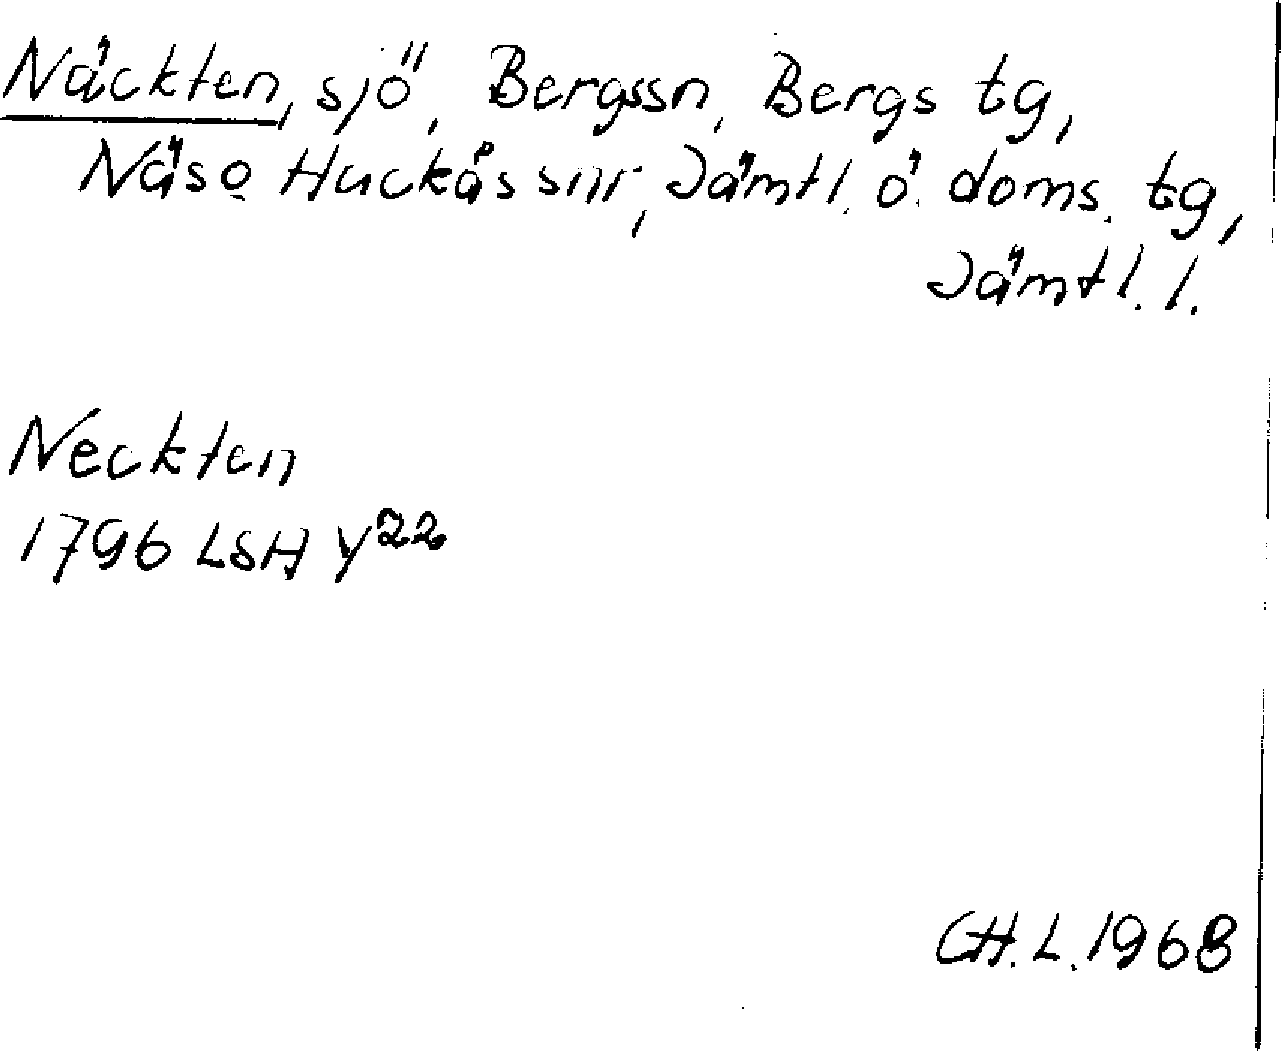 Näckten, sjö, Bergssn, Bergs tg,
Näs o Hackås snr, Jämtl. ö. doms. tg,
Jämtl. l.
Neckten
1796 LSH Y22
CH.L. 1968